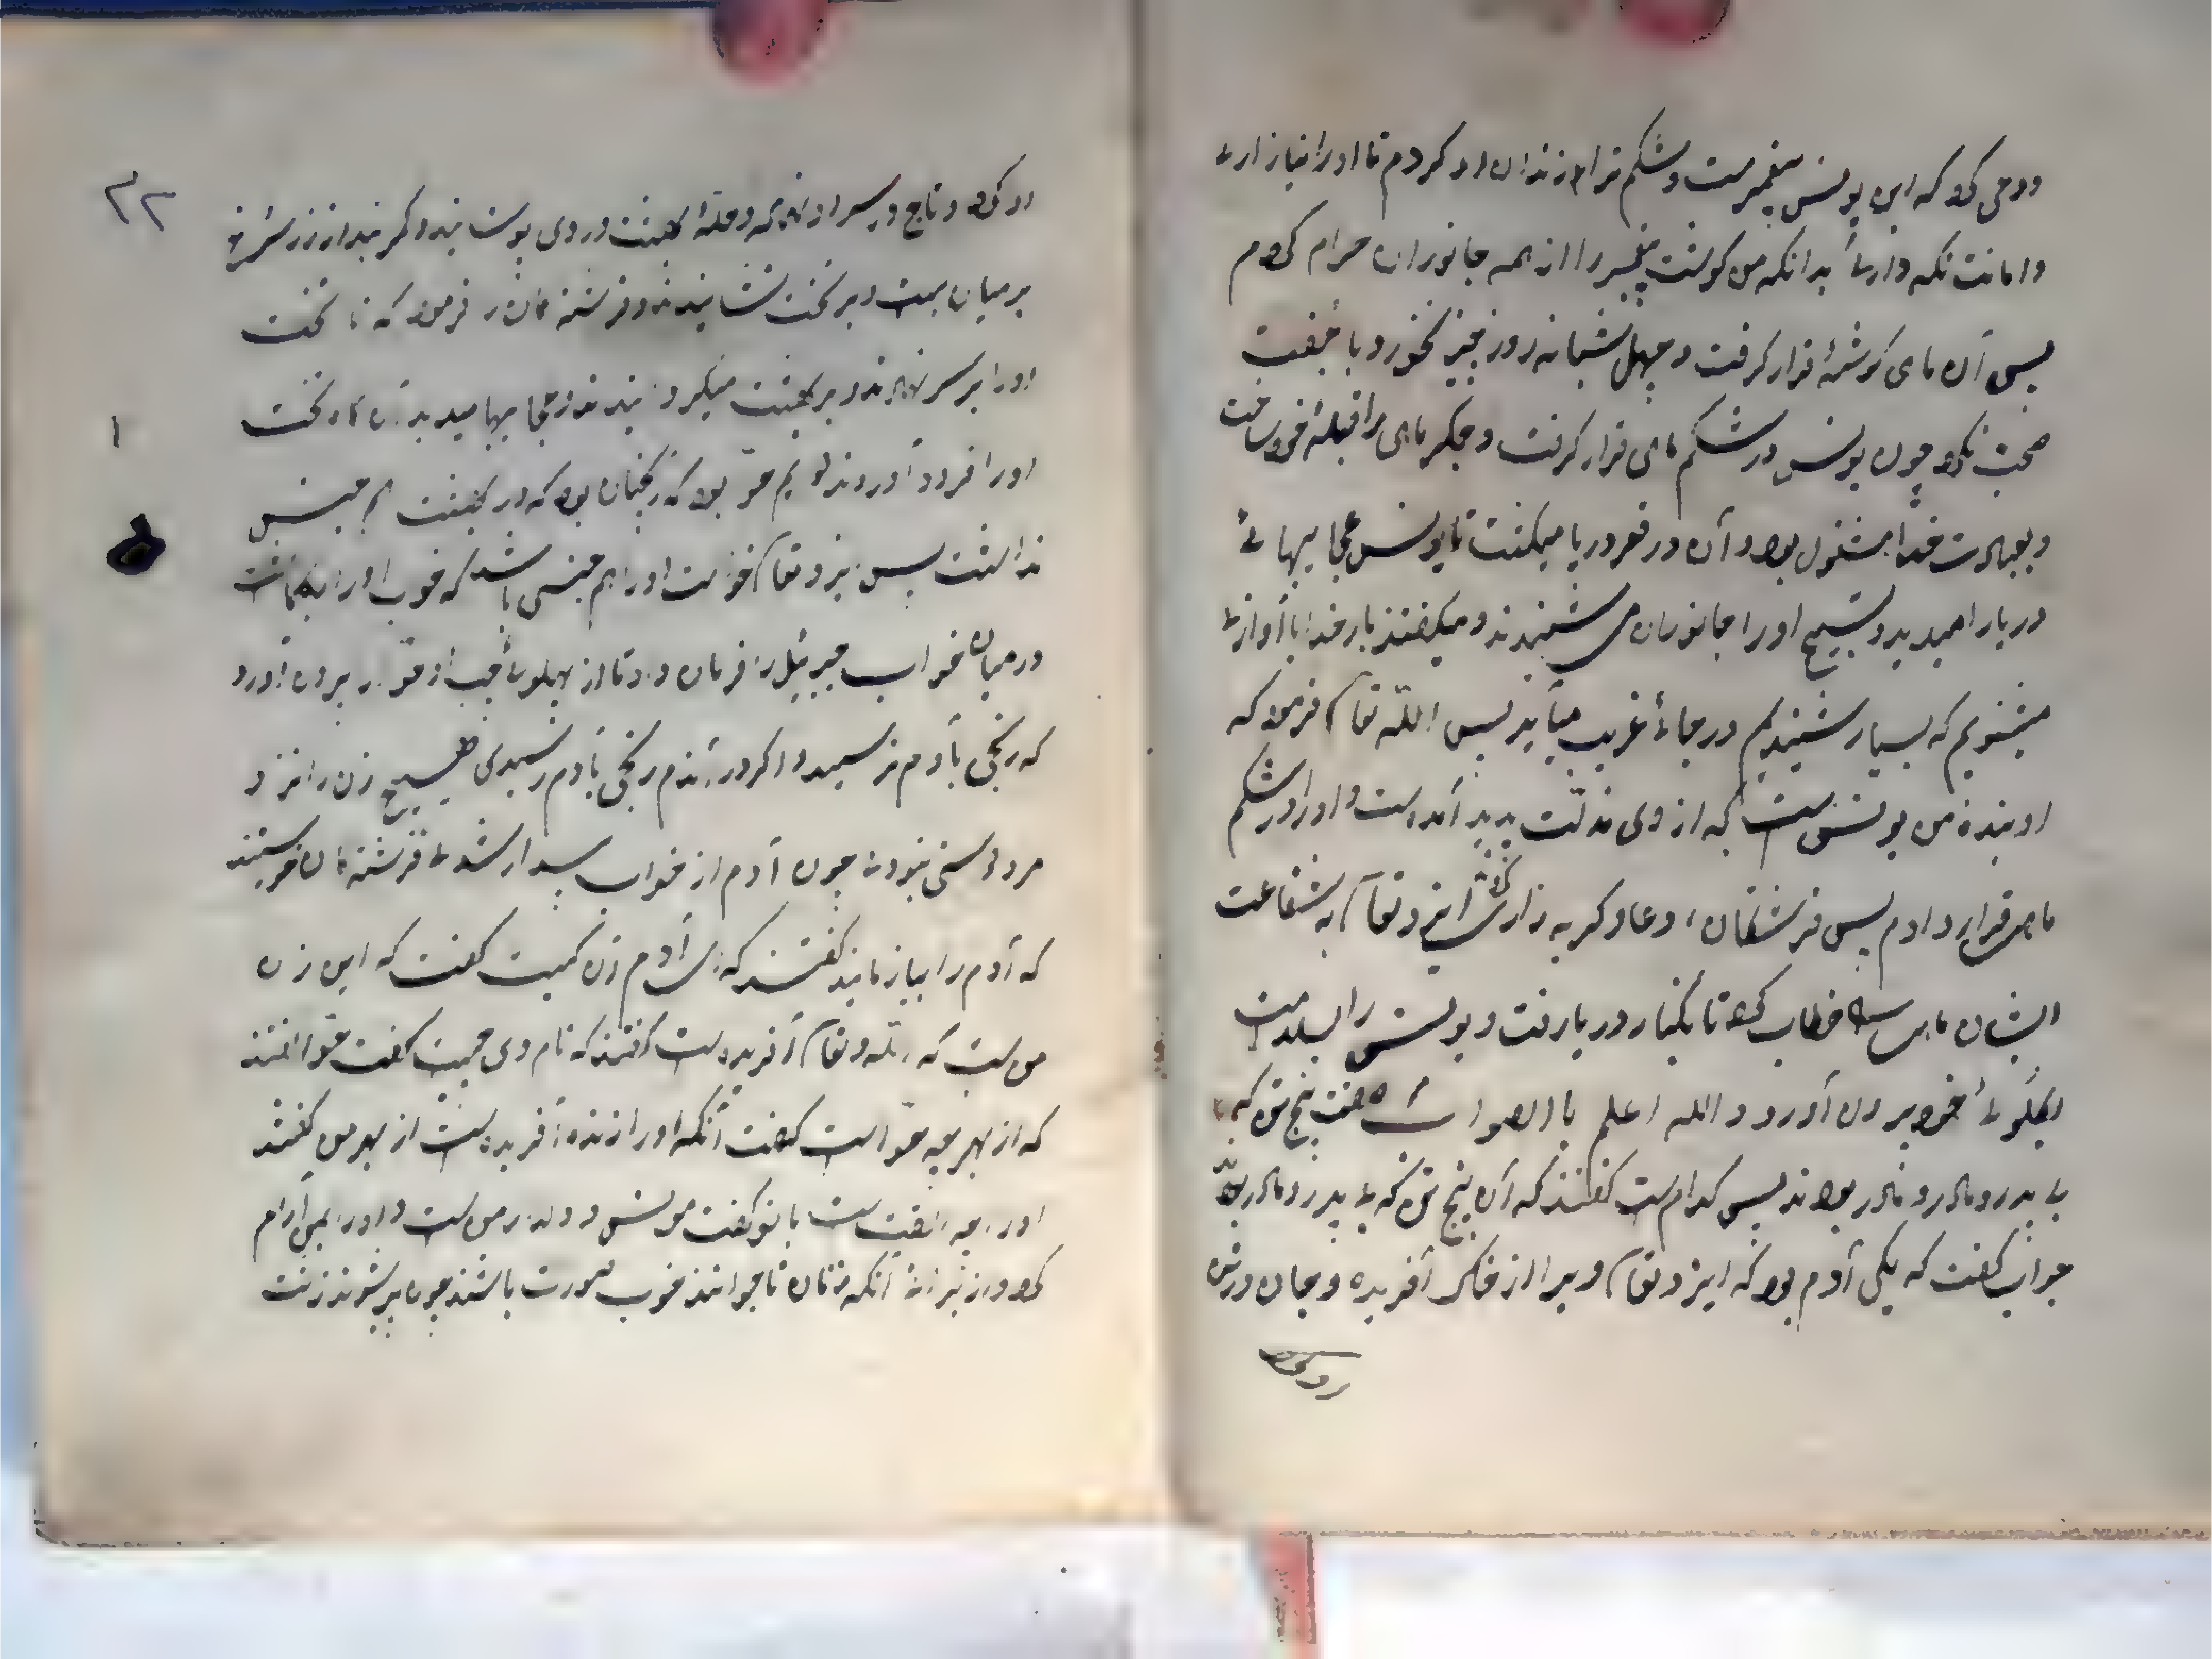 و وحی کرد که این یونس پیغمبرست و شکم ترا زندان او کردم تا او را نیازاری
و امانت نگه داری بدانکه من گوشت پیغمبر را از همه جانوران حرام کردم
پس آن ماهی گوشهٔ قرار گرفت و چهل شبانه روز چیز نخورد و با جفت
صحبت نکرد چون یونس در شکم ماهی قرار گرفت و جگر ماهی را قبلهٔ خود ساخت
و بعبادت خدا مشغول بود و آن در قعر دریا میگشت تا یونس عجایبهای
دریا را میدید و تسبیح او را جانوران می شنیدند و میگفتند بار خدایا آوازی
میشنویم که بسیار شنیدیم در جای غریب میآید پس الله تعا فرمود که
او بندهٔ من یونس ست که از وی مذلت پدید آمده ست و او را در شکم
ماهی قرار دادم پس فرشتگان دعا و گریه زاری ایزد تعا به شفاعت
ایشان ماهی خطاب کرد تا بکنار دریا رفت و یونس را بسلامت
از گلوی خود بیرون آورد و الله اعلم باالصواب گفت پنج تن که
بی پدر و مادر بودند پس کدام ست گفتند که آن پنج تن که بی پدر و مادر بود
جواب گفت که یکی آدم بود که ایزد تعا ویرا از خاک آفریده و جان در تن
او کرد و تاج در سر او نهاد و حلهٔ بهشت در وی پوشانید و کمر بند از زر سرخ
بر میان بست و بر تخت نشانیدند و فرشتگان را فرمود که تا تخت
او را بر سر نهادند و در بهشت میگردانیدند و عجایبها میدید آن گاه تخت
او را فرود آوردند حوا بود که در بهشت هم جنس
نداشت پس ایزد تعا خواست او را هم جنسی باشد که خواب او را بگماشت
در میان خواب جبرئیل را فرمان داد تا از پهلوی چپ او حوا را بیرون آورد
که رنجی بآدم نرسید و اگر در آندم رنجی بآدم رسیدی هیچ زن را نزد
مرد دوستی نبودی چون آدم از خواب بیدار شد فرشتگان خواستند
که آدم را بیازمایند گفتند که ای آدم زن کیست گفت که این زن
من ست که الله و تعا آفریده ست گفتند که نام وی چیست گفت حوا گفتند
که از بهر چه حواست گفت آنکه او را از زنده آفریده ست از بهر من گفتند
او را چه الفت ست با تو گفت مونس و دلدار من ست و او را بمن آرام
کرد آنکه زنان تا جوانند خوب صورت باشند چون پیر شوند زشت
۲۲